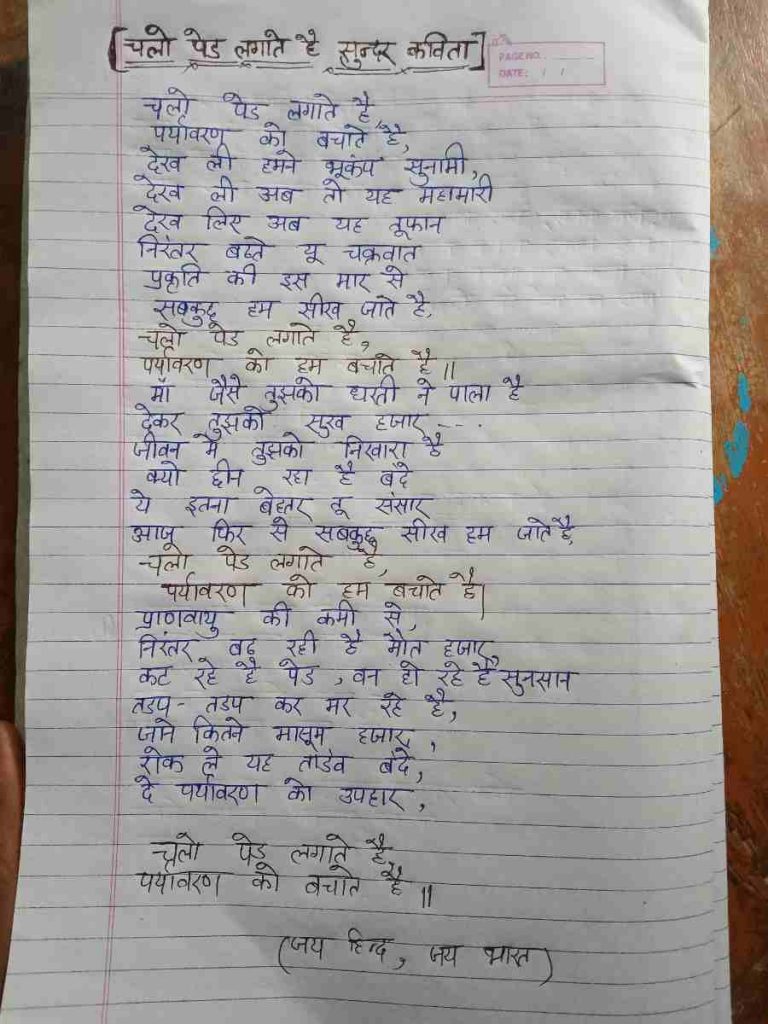 [चलो पेड लगाते है सुन्दर कविता]
PAGE NO.
DATE: / /
चलो पेड लगाते है,
पर्यावरण को बचाते है,
देख ली हमने भूकंप सुनामी,
देख ली अब तो यह महामारी
देख लिए अब यह तूफान
निरंतर बढ्ते यू चक्रवात
प्रकृति की इस मार से
सबकुछ हम सीख जाते है.
चलो पेड लगाते है,
पर्यावरण को हम बचाते है॥
माँ जैसे तुझको धरती ने पाला है
देकर तुझको सुख हजार ---.
जीवन मे तुझको निखारा है
क्यो छीन रहा है बंदे
ये इतना बेहतर तू संसार
आज फिर से सबकुछ सीख हम जाते है,
चलो पेड लगाते है,
पर्यावरण को हम बचाते है।
प्राणवायु की कमी से,
निरंतर बढ रही है मौत हजार,
कट रहे है पेड, वन हो रहे है सुनसान
तडप- तडप कर मर रहे है,
जाने कितने मासूम हजार,
रोक ले यह तांडव बंदे,
दे पर्यावरण को उपहार,
चलो पेड लगाते है,
पर्यावरण को बचाते है॥
(जय हिन्द, जय भारत)